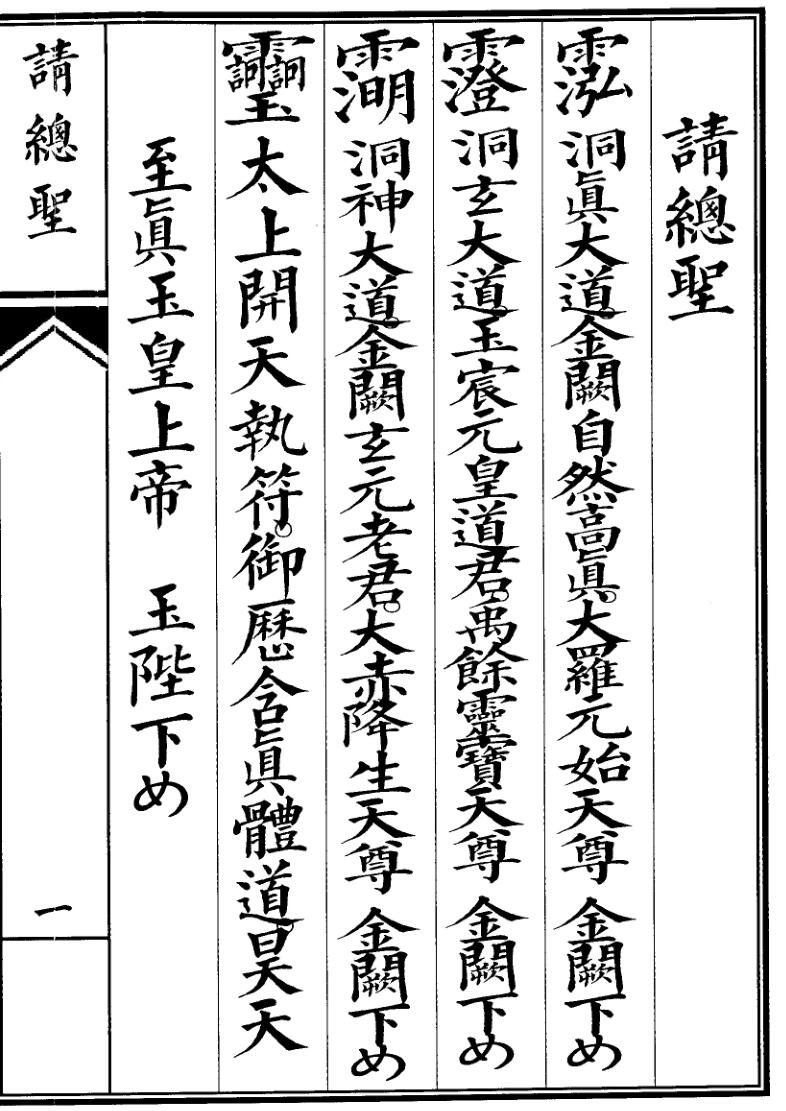 請總聖
洞眞大道。金闕自然高眞。大羅元始天尊 金闕下め
洞玄大道。玉宸元皇道君。禹餘靈寶天尊 金闕下め
洞神大道。金闕玄元老君。大赤降生天尊 金闕下め
太上開天執符。御歷含眞體道。昊天
至眞玉皇上帝 玉陛下め
請總聖
一